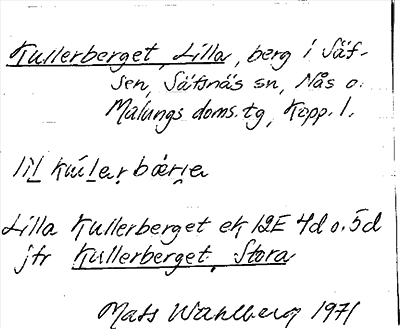 Kullerberget, Lilla, berg i Säf-
sen, Säfsnäs sn, Nås o.
Malungs doms.tg, Kopp. l.
lil kular bærja
Lilla Kullerberget ek 12E 4d o. 5d
jfr Kullerberget, Stora
Mats Wahlberg 1971